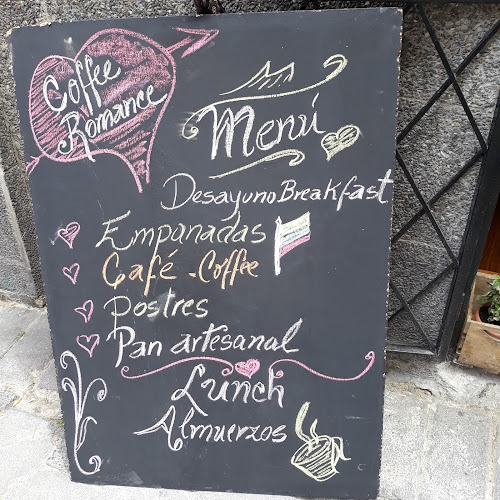 Coffee
Romance
Menú
Desayuno Breakfast
Empanadas
Café - Coffee
Postres
Pan artesanal
Lunch
Almuerzos